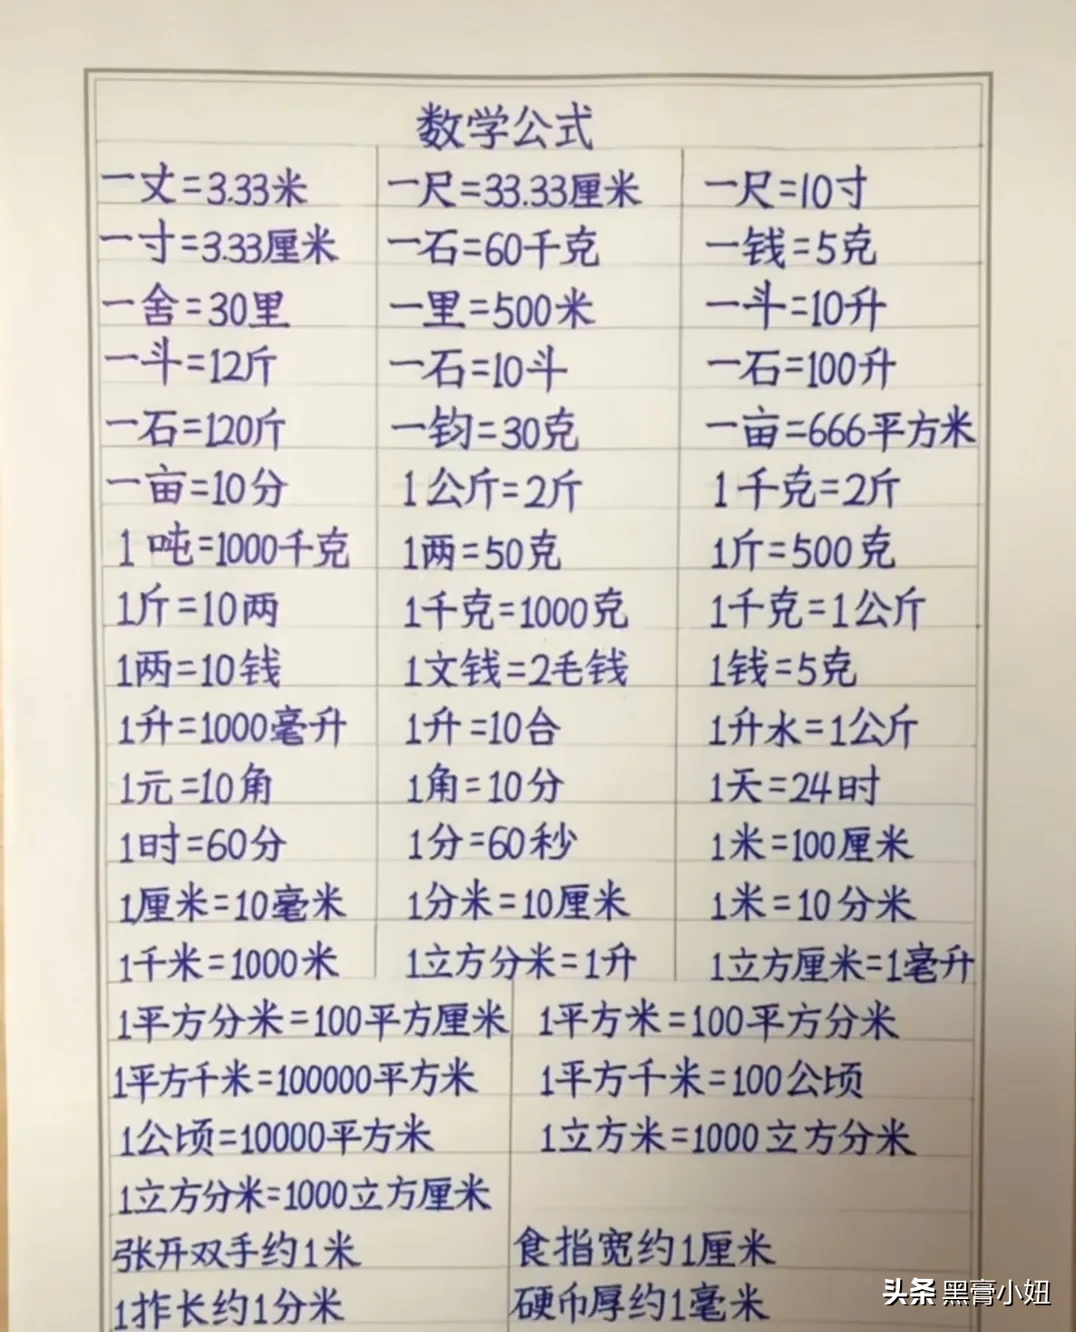 数学公式
一丈=3.33米 一尺=33.33厘米 一尺=10寸
一寸=3.33厘米 一石=60千克 一钱=5克
一舍=30里 一里=500米 一斗=10升
一斗=12斤 一石=10斗 一石=100升
一石=120斤 一钧=30克 一亩=666平方米
一亩=10分 1公斤=2斤 1千克=2斤
1吨=1000千克 1两=50克 1斤=500克
1斤=10两 1千克=1000克 1千克=1公斤
1两=10钱 1文钱=2毛钱 1钱=5克
1升=1000毫升 1升=10合 1升水=1公斤
1元=10角 1角=10分 1天=24时
1时=60分 1分=60秒 1米=100厘米
1厘米=10毫米 1分米=10厘米 1米=10分米
1千米=1000米 1立方分米=1升 1立方厘米=1毫升
1平方分米=100平方厘米 1平方米=100平方分米
1平方千米=100000平方米 1平方千米=100公顷
1公顷=10000平方米 1立方米=1000立方分米
1立方分米=1000立方厘米
张开双手约1米 食指宽约1厘米
1拃长约1分米 硬币厚约1毫米
头条 黑膏小妞